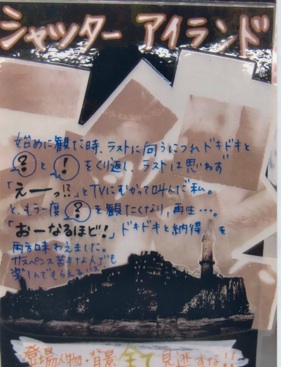 シャッター アイランド
始めに観た時、ラストに向うにつれドキドキと
? と ! をくり返し、ラストは思わず
「えーっ!?」とTVにむかって叫んだ私。
と、もう一度 ? を観たくなり、再生…。
「おーなるほど!」ドキドキと納得 を
両方味わえました。
サスペンス苦手な人でも
楽しんでもらえる
登場人物・背景 全て 見逃すな!!